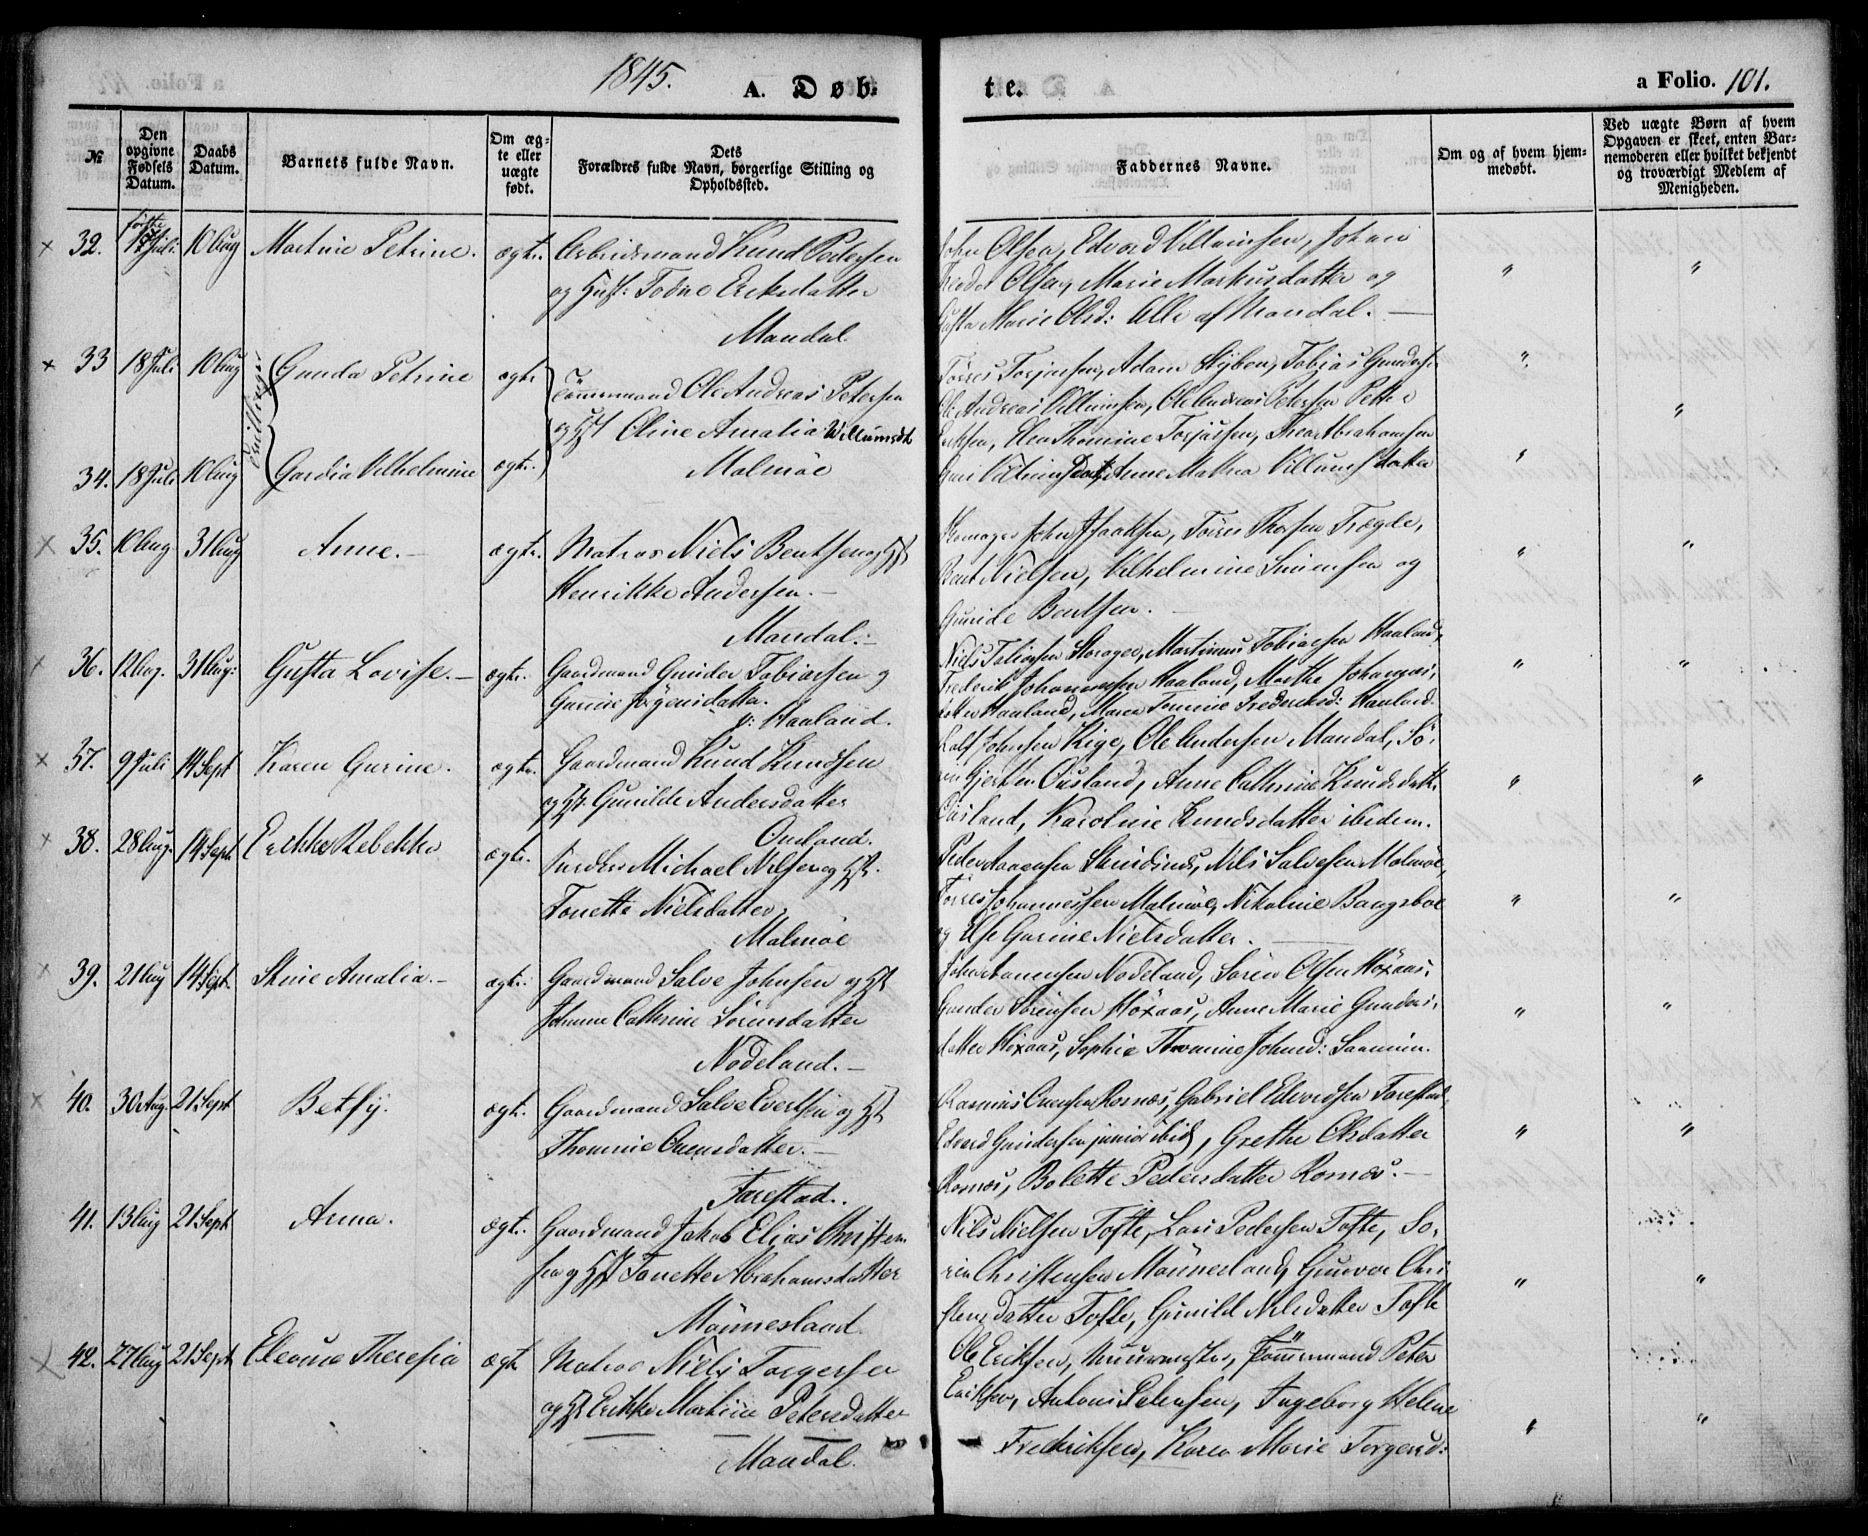 1845.
A. Døb-
te.
a Folio. 101.
№
Den opgivne Fødsels Datum.
Daabs Datum.
Barnets fulde Navn.
Om ægte eller uægte født.
Dets Forældres fulde Navn, borgerlige Stilling og Opholdssted.
Faddernes Navne.
Om og af hvem hjemmedøbt.
Ved uægte Børn af hvem Opgaven er skeet, enten Barnemoderen eller hvilket bekjendt og troværdigt Medlem af Menigheden.
32. Juli 10 Aug Martine Petrine. ægte. Arbeidsmand Knud Pedersen
og Hust: Todne Eriksdatter
Mandal
John Olsen, Edvard Villumsen, Johan
Olsen, Marie Markusdatter og
Marie Olsd: Alle af Mandal.
33 18 Juli 10 Aug Gunda Petrine ægte Tømmermand Ole Andreas Petersen
Tvillinger
og Hst Oline Amalia Willumsdt
34. 18 Juli 10 Aug Gardia Vilhelmine ægte. Malmöe
Törres Torjussen, Adam Stÿben, Tobias Gunders
Ole Andreas Villumsen, Ole Andreas Petersen Petter
Eriksen, Elen Thomine Torjussen, Thea Abrahamsen
Villumsdatt, Anne Mathea Villumsdatter
35. 10 Aug 31 Aug Anne. ægte. Matros Niels Bentsen og Hst
Henrikke Andersen.
Mandal.
Skomager John Isaaksen, Törres Thorsen Trægde,
Bent Nielsen, Vilhelmine Simensen og
Gunide Bentsen.
36. 12 Aug. 31 Aug: Gusta Lovise. ægte. Gaardmand Gunder Tobiassen og
Gurine Jörgensdatter.
Haaland.
Niels Tobiassen Skrager, Martinius Tobiassen Haaland,
Frederik Johannessen Haaland, Marthe Johannes,
datter Haaland, Maren Tomine Frederiksd: Haaland.
37. 9 Juli 14 Sept Karen Gurine. ægte. Gaardmand Knud Knudsen
og Hst. Gunilde Andersdatter
Ousland.
Rolf Johnsen Kige, Ole Andersen Mandal, Sö,
ren Gjertsen Ousland, Anne Cathrine Knudsdatt.
Ousland, Karoline Knudsdatter ibedem.
38. 28 Aug. 14 Sept. Erikke Rebekka ægte. Snedker Michael Nilsen og Hst.
Tonette Nielsdatter.
Malmöe
Peder Aanensen Skindinus, Nils Salvesen Malmöe,
Törres Johannessen Malmöe, Nikoline Bangsboe
og Else Gurine Nielsdatter.
39. 21 Aug 14 Sept. Stine Amalia. ægte. Gaardmand Salve Johnsen og Hst
Johanne Cathrine Sörensdatter
Nodeland.
John Aanensen Nodeland, Sören Olsen Höxaas,
Gunder Sörensen Höxaas, Anne Marie Gunders,
datter Höxaas, Sophie Thomine Johnsd: Saanum.
40. 30 Aug. 21 Sept Betsy. ægte. Gaardmand Salve Evertsen og Hst
Thomine Ouensdatter.
Farestad.
Rasmus Ouensen Romæs, Gabriel Edvardsen Farestad,
Edvard Gundersen junior ibid, Grethe Olsdatter
Romæs, Bolette Pedersdatter Romæs.
41. 13 Aug 21 Sept Anna. ægte. Gaardmand Jakob Elias Christen
sen og Hst Tonette Abrahamsdatter
Mönnesland.
Nils Nielsen Tofte, Lars Pedersen Tofte, Sö,
ren Christensen Mönnesland, Gunvor Chri,
stensdatter Tofte, Gunild Nilsdatter Tofte
42. 27 Aug 21 Sept Elevine Theresia ægte Matros Niels Torgersen
og Hst Erikke Martine Petersdatter
Mandal.
Ole Eriksen, Muurmester, Tömmermand Peter
Eriksen, Antoni Petersen, Ingeborg Helene
Fredriksen, Karen Marie Torgersd: